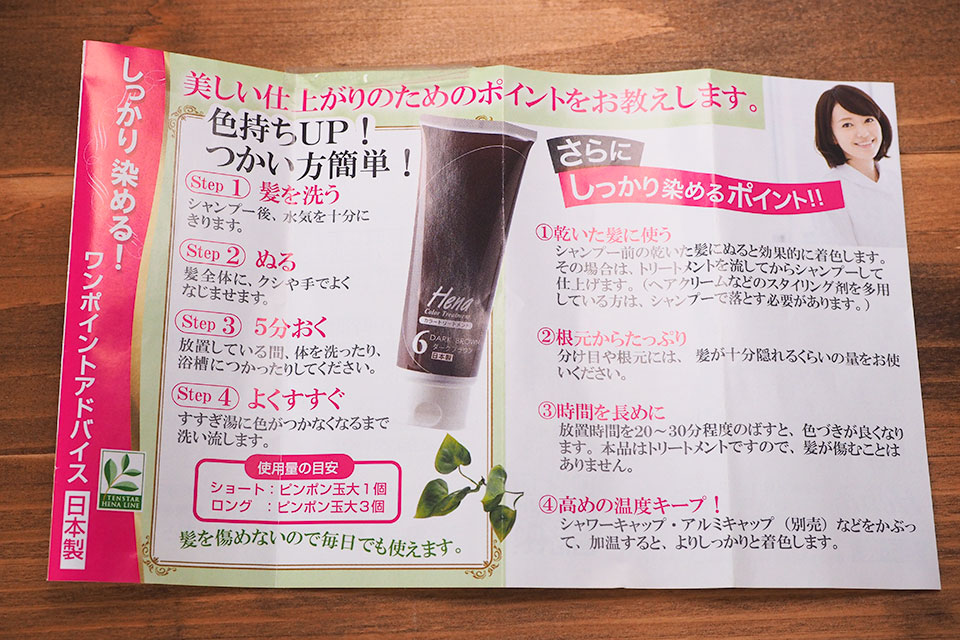 しっかり染める！
ワンポイントアドバイス 日本製
TENSTAR
HENA LINE
美しい仕上がりのためのポイントをお教えします。
色持ちUP！
つかい方簡単！
Step 1 髪を洗う
シャンプー後、水気を十分に
きります。
Step 2 ぬる
髪全体に、クシや手でよく
なじませます。
Step 3 5分おく
放置している間、体を洗ったり、
浴槽につかったりしてください。
Step 4 よくすすぐ
すすぎ湯に色がつかなくなるまで
洗い流します。
使用量の目安
ショート：ピンポン玉大1個
ロング ：ピンポン玉大3個
髪を傷めないので毎日でも使えます。
Hena
Color Treatment
カラートリートメント
6 DARK BROWN
ダークブラウン
日本製
さらに
しっかり染めるポイント!!
①乾いた髪に使う
シャンプー前の乾いた髪にぬると効果的に着色します。
その場合は、トリートメントを流してからシャンプーして
仕上げます。（ヘアクリームなどのスタイリング剤を多用
している方は、シャンプーで落とす必要があります。）
②根元からたっぷり
分け目や根元には、髪が十分隠れるくらいの量をお使
いください。
③時間を長めに
放置時間を20～30分程度のばすと、色づきが良くなり
ます。本品はトリートメントですので、髪が傷むことは
ありません。
④高めの温度キープ！
シャワーキャップ・アルミキャップ（別売）などをかぶっ
て、加温すると、よりしっかりと着色します。